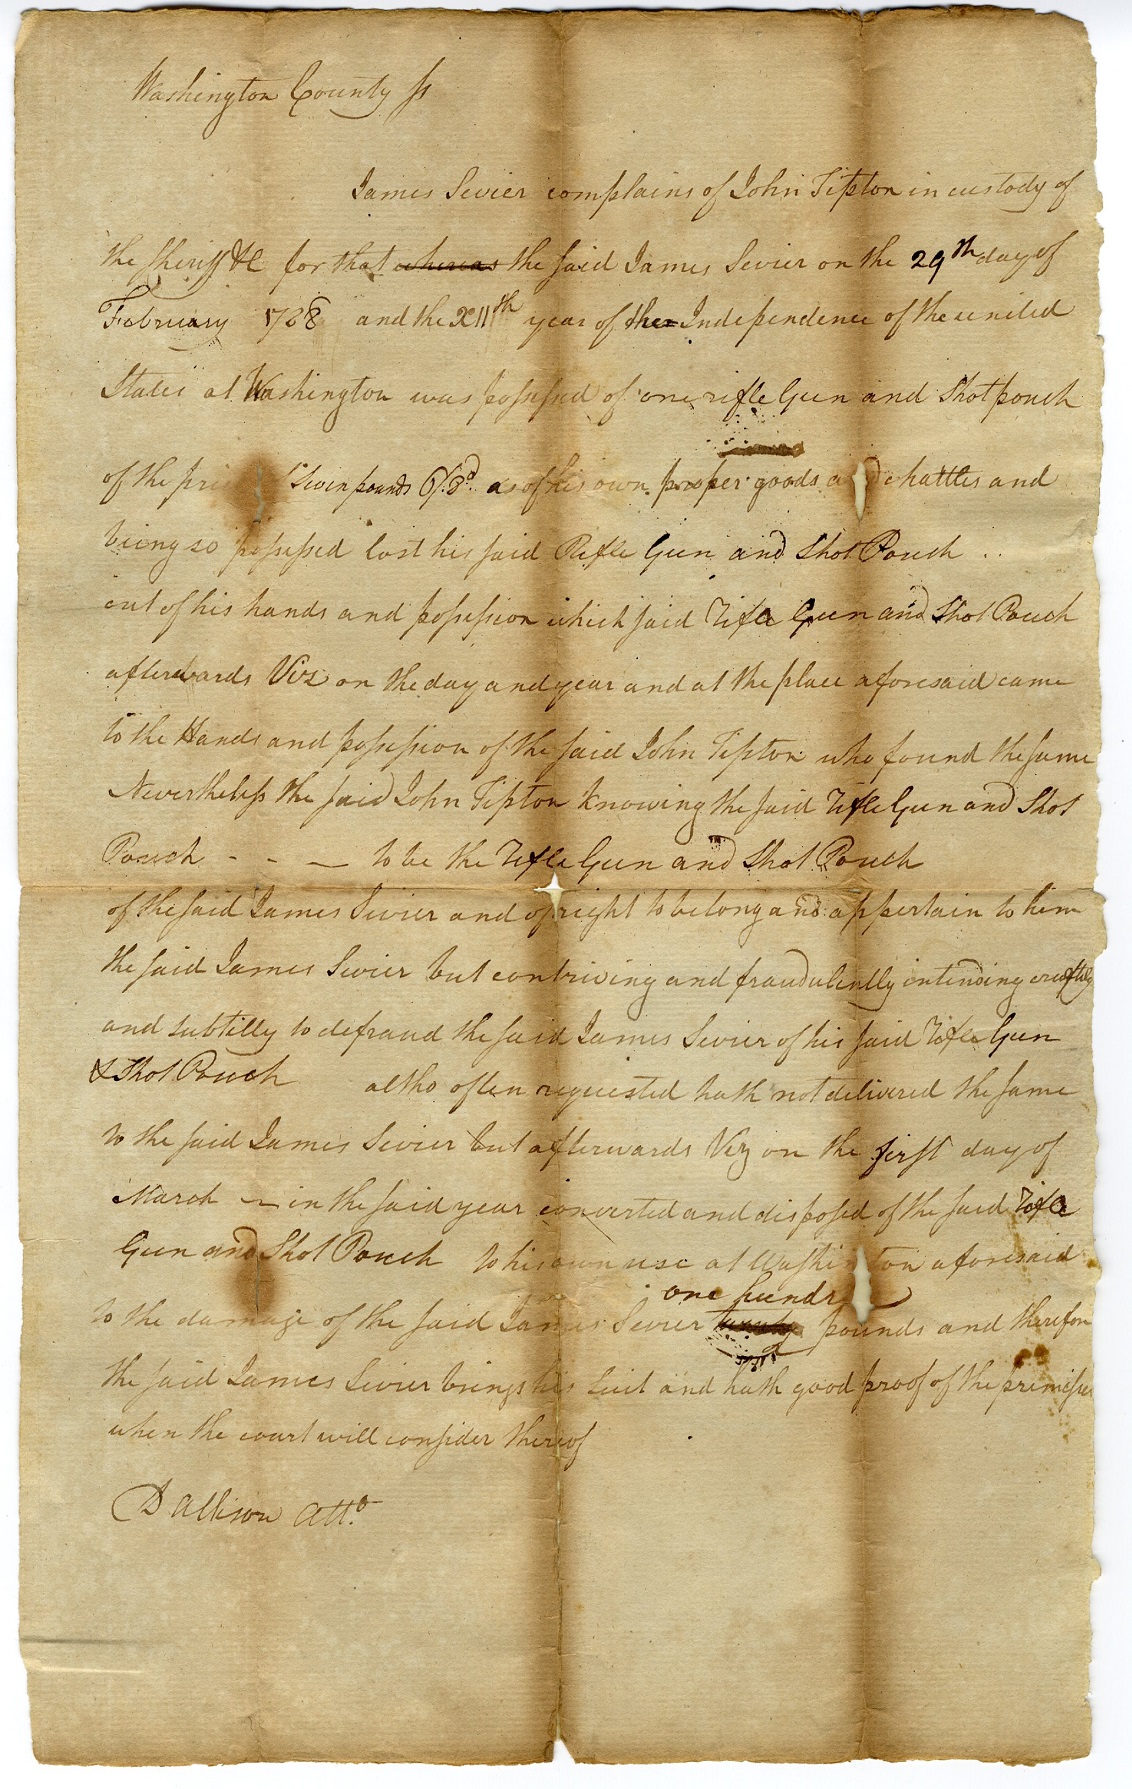 Washington County ss
James Sevier complains of John Tipton in custody of
the sheriff &c for that whereas the said James Sevier on the 29th day of
February 1788 and the XIIth year of the Independence of the united
States at Washington was possessed of one rifle Gun and Shot pouch
of the pri Seven pounds 6/.8d. as of his own proper goods a d chattles and
being so possessed lost his said Rifle Gun and Shot Pouch ..
out of his hands and possession which said Rifle Gun and Shot Pouch
afterwards Viz on the day and year and at the place aforesaid came
to the Hands and possession of the said John Tipton who found the same
Nevertheless the said John Tipton Knowing the said Rifle Gun and Shot
Pouch - - — to be the Rifle Gun and Shot Pouch
of the said James Sevier and of right to belong and appertain to him
the said James Sevier but contriving and fraudulently intending craftily
and subtilly to defraud the said James Sevier of his said Rifle Gun
& Shot Pouch altho often requested hath not delivered the same
to the said James Sevier but afterwards Viz on the first day of
March — in the said year converted and disposed of the said Rifle
Gun and Shot Pouch to his own use at Washin ton aforesaid
one hundr
to the damage of the said James Sevier twenty pounds and therefore
the said James Sevier brings his suit and hath good proof of the premises
when the court will consider thereof
D Allison Atto.